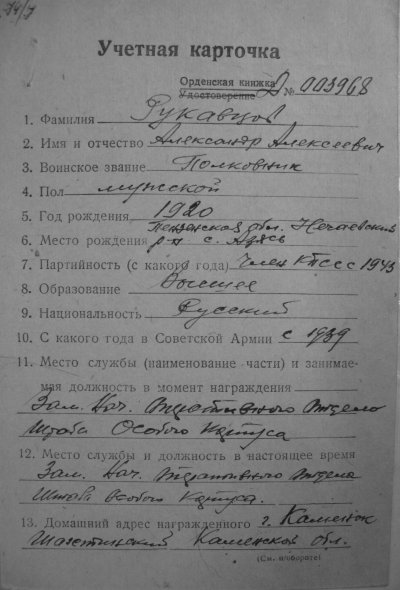 Учетная карточка
Орденская книжка
Удостоверение Д № 003968
1. Фамилия Рукавцов
2. Имя и отчество Александр Алексеевич
3. Воинское звание Полковник
4. Пол мужской
5. Год рождения 1920
Пензенская обл. Нечаевский
6. Место рождения р-н с. Азясь
7. Партийность (с какого года) Член КПСС с 1943
8. Образование Высшее
9. Национальность Русский
10. С какого года в Советской Армии с 1939
11. Место службы (наименование части) и занимае-
мая должность в момент награждения
Зам. Нач. Оперативного отдела
Штаба Особого Корпуса
12. Место службы и должность в настоящее время
Зам. Нач. Оперативного отдела
Штаба Особого Корпуса.
13. Домашний адрес награжденного г. Каменск
Шахтинский Каменской обл.
(См. на обороте)